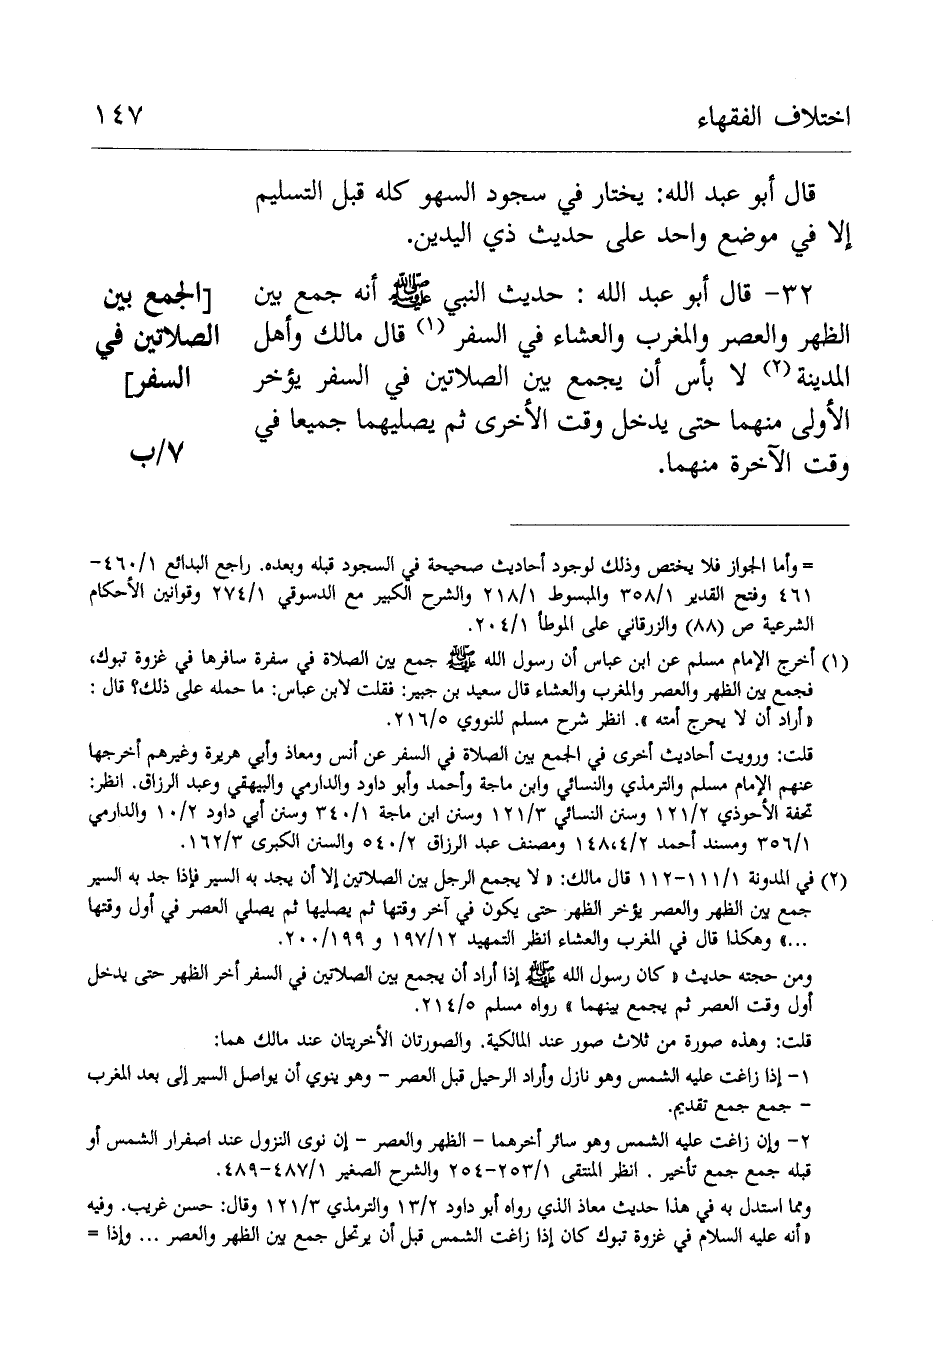 اختلاف الفقهاء ١٤٧
قال أبو عبد الله: يختار في سجود السهو كله قبل التسليم
إلا في موضع واحد على حديث ذي اليدين.
٣٢- قال أبو عبد الله : حديث النبي ﷺ أنه جمع بين
الظهر والعصر والمغرب والعشاء في السفر (١) قال مالك وأهل
المدينة (٢) لا بأس أن يجمع بين الصلاتين في السفر يؤخر
الأولى منهما حتى يدخل وقت الأخرى ثم يصليهما جميعا في
وقت الآخرة منهما.
[الجمع بين
الصلاتين في
السفر]
٧/ب
= وأما الجواز فلا يختص وذلك لوجود أحاديث صحيحة في السجود قبله وبعده. راجع البدائع ٤٦٠/١-
٤٦١ وفتح القدير ٣٥٨/١ والمبسوط ٢١٨/١ والشرح الكبير مع الدسوقي ٢٧٤/١ وقوانين الأحكام
الشرعية ص (٨٨) والزرقاني على الموطأ ٢٠٤/١.
(١) أخرج الإمام مسلم عن ابن عباس أن رسول الله ﷺ جمع بين الصلاة في سفرة سافرها في غزوة تبوك،
فجمع بين الظهر والعصر والمغرب والعشاء قال سعيد بن جبير: فقلت لابن عباس: ما حمله على ذلك؟ قال :
«أراد أن لا يحرج أمته ». انظر شرح مسلم للنووي ٢١٦/٥.
قلت: ورويت أحاديث أخرى في الجمع بين الصلاة في السفر عن أنس ومعاذ وأبي هريرة وغيرهم أخرجها
عنهم الإمام مسلم والترمذي والنسائي وابن ماجة وأحمد وأبو داود والدارمي والبيهقي وعبد الرزاق. انظر:
تحفة الأحوذي ١٢١/٢ وسنن النسائي ١٢١/٣ وسنن ابن ماجة ٣٤٠/١ وسنن أبي داود ١٠/٢ والدارمي
٣٥٦/١ ومسند أحمد ١٤٨،٤/٢ ومصنف عبد الرزاق ٥٤٠/٢ والسنن الكبرى ١٦٢/٣.
(٢) في المدونة ١١١/١-١١٢ قال مالك: « لا يجمع الرجل بين الصلاتين إلا أن يجد به السير فإذا جد به السير
جمع بين الظهر والعصر يؤخر الظهر حتى يكون في آخر وقتها ثم يصليها ثم يصلي العصر في أول وقتها
...» وهكذا قال في المغرب والعشاء انظر التمهيد ١٩٧/١٢ و ٢٠٠/١٩٩.
ومن حجته حديث « كان رسول الله ﷺ إذا أراد أن يجمع بين الصلاتين في السفر أخر الظهر حتى يدخل
أول وقت العصر ثم يجمع بينهما » رواه مسلم ٢١٤/٥.
قلت: وهذه صورة من ثلاث صور عند المالكية. والصورتان الأخريتان عند مالك هما:
١- إذا زاغت عليه الشمس وهو نازل وأراد الرحيل قبل العصر - وهو ينوي أن يواصل السير إلى بعد المغرب
- جمع جمع تقديم.
٢- وإن زاغت عليه الشمس وهو سائر أخرهما - الظهر والعصر - إن نوى النزول عند اصفرار الشمس أو
قبله جمع جمع تأخير . انظر المنتقى ٢٥٣/١-٢٥٤ والشرح الصغير ٤٨٧/١-٤٨٩.
ومما استدل به في هذا حديث معاذ الذي رواه أبو داود ١٣/٢ والترمذي ١٢١/٣ وقال: حسن غريب. وفيه
«أنه عليه السلام في غزوة تبوك كان إذا زاغت الشمس قبل أن يرتحل جمع بين الظهر والعصر ... وإذا =